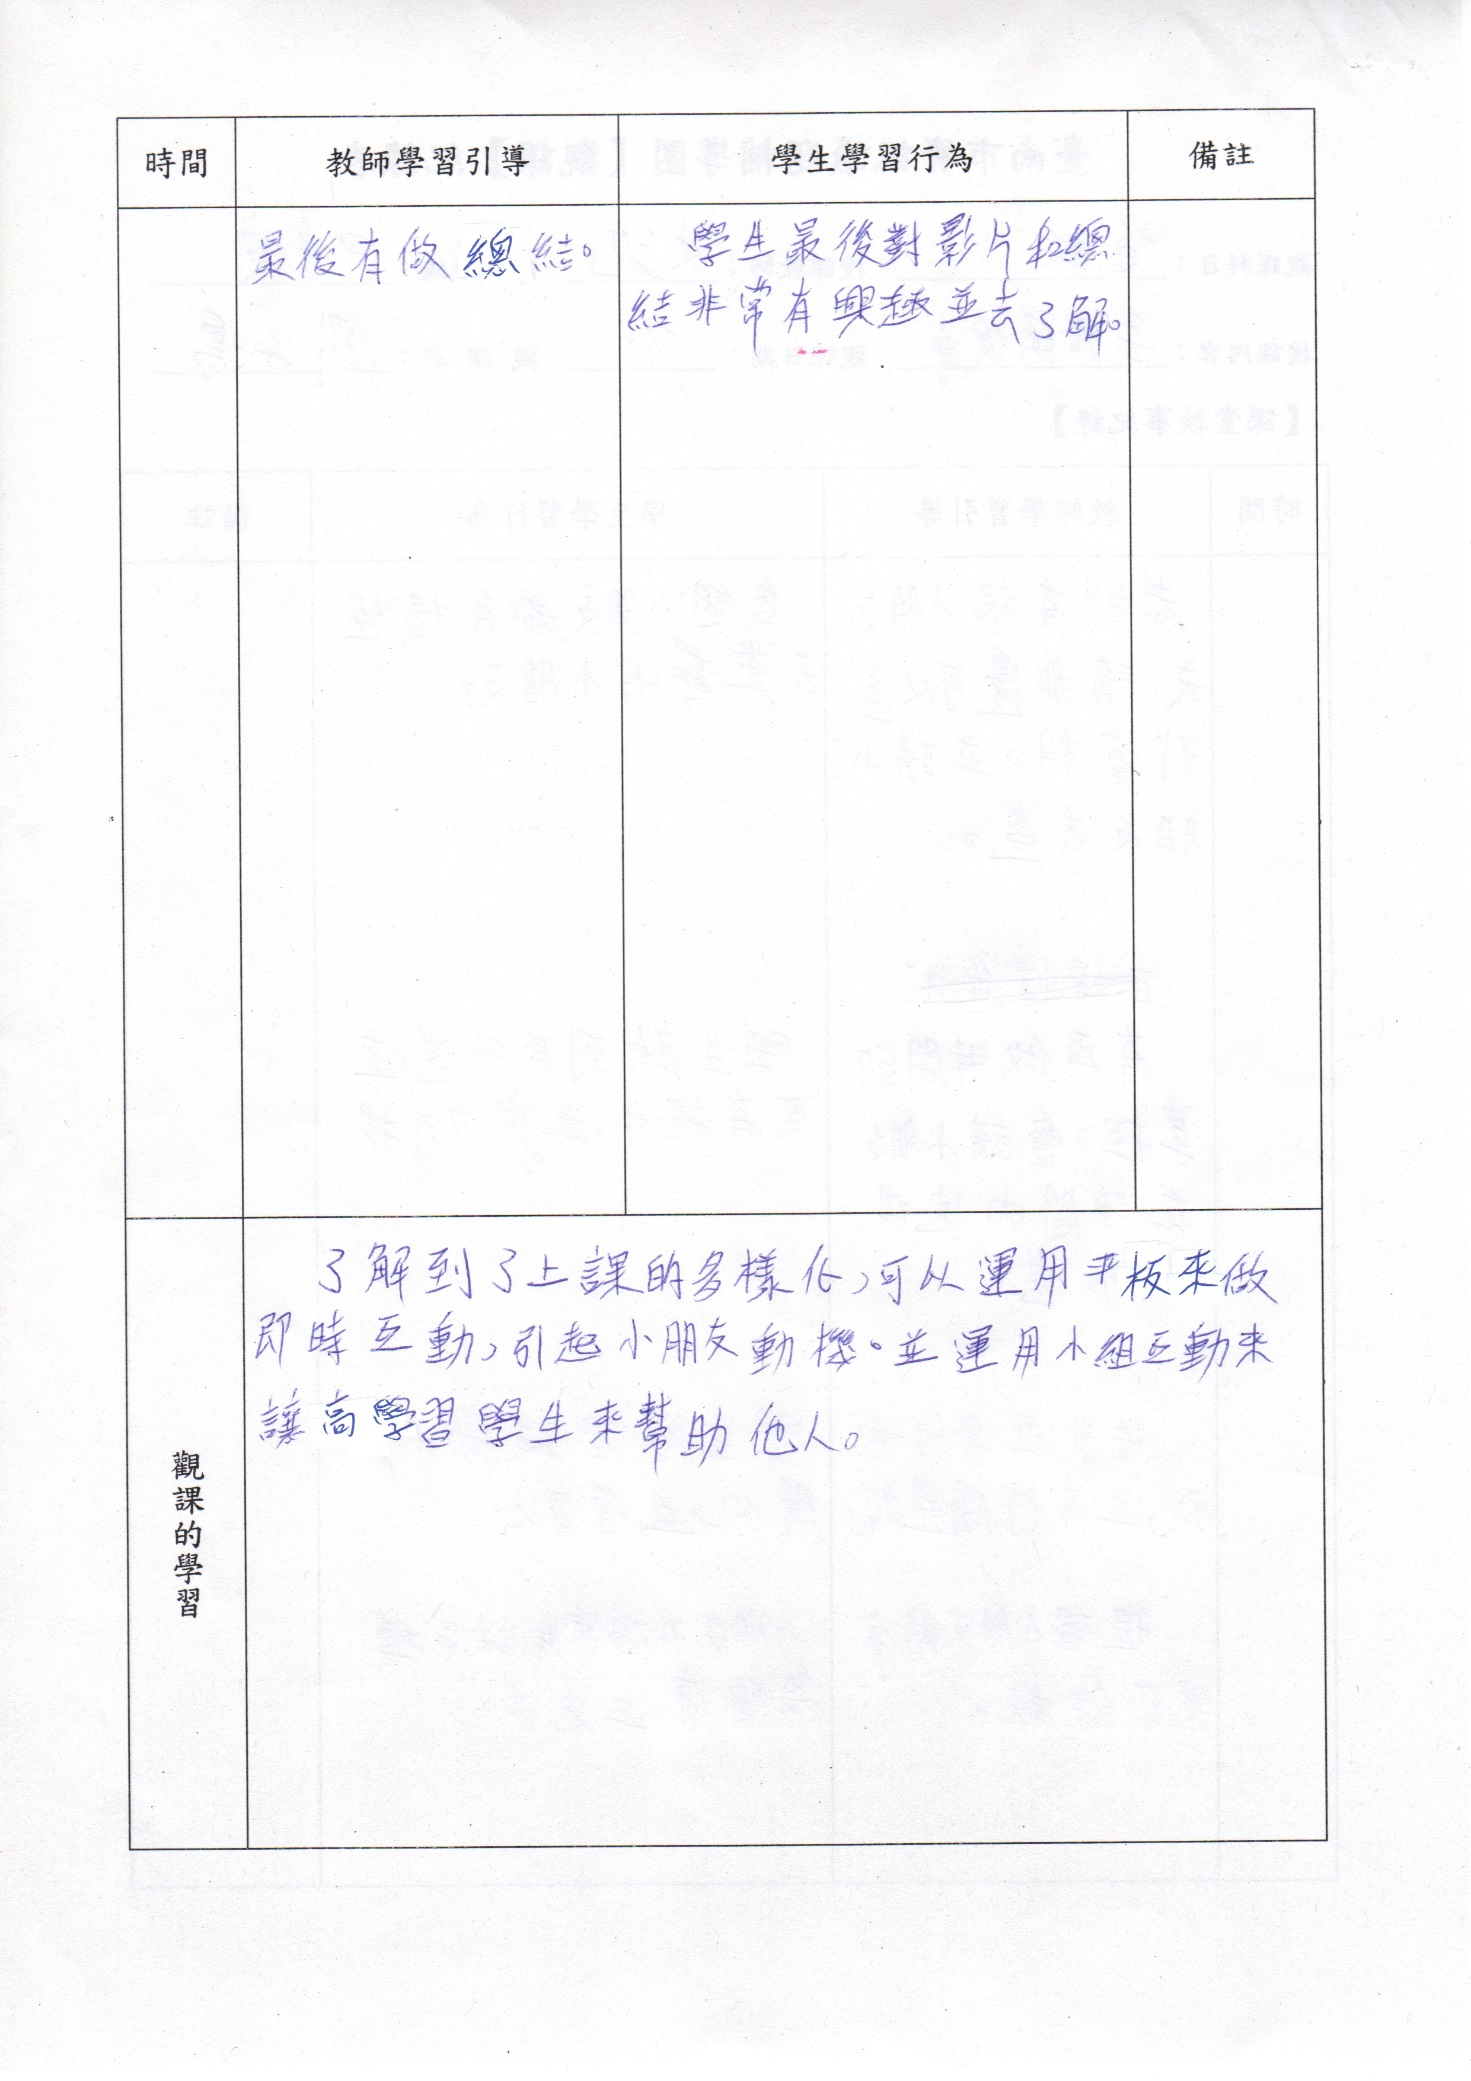 時間 教師學習引導 學生學習行為 備註
最後有做總結。
學生最後對影片和總
結非常有興趣並去了解。
觀課的學習
了解到了上課的多樣化,可以運用平板來做
即時互動,引起小朋友動機。並運用小組互動來
讓高學習學生來幫助他人。